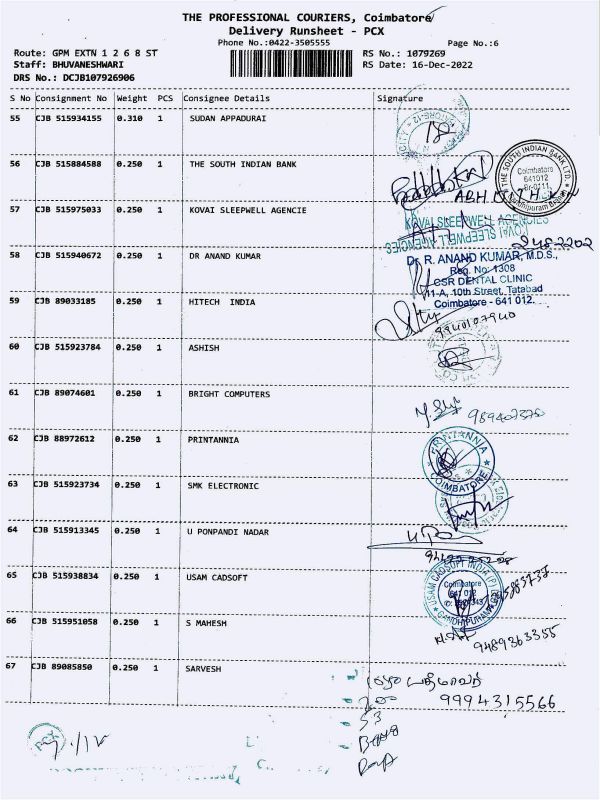 THE PROFESSIONAL COURIERS, Coimbatore
Delivery Runsheet - PCX
Phone No.:0422-3505555
Page No.:6
Route: GPM EXTN 1 2 6 8 ST
RS No.: 1079269
Staff: BHUVANESHWARI
RS Date: 16-Dec-2022
DRS No.: DCJB107926906
S No Consignment No Weight PCS Consignee Details Signature
55 CJB 515934155 0.310 1 SUDAN APPADURAI
56 CJB 515884588 0.250 1 THE SOUTH INDIAN BANK
THE SOUTH INDIAN BANK LTD.
Coimbatore
641012
57 CJB 515975033 0.250 1 KOVAI SLEEPWELL AGENCIE
KOVAI SLEEPWELL AGENCIES
KOVAI SLEEPWELL AGENCIES
58 CJB 515940672 0.250 1 DR ANAND KUMAR
Dr. R. ANAND KUMAR, M.D.S.,
Reg. No: 1308
CSR DENTAL CLINIC
11-A, 10th Street, Tatabad
Coimbatore - 641 012.
59 CJB 89033185 0.250 1 HITECH INDIA
9940107940
60 CJB 515923784 0.250 1 ASHISH
61 CJB 89074601 0.250 1 BRIGHT COMPUTERS
62 CJB 88972612 0.250 1 PRINTANNIA
PRINTANNIA
COIMBATORE
63 CJB 515923734 0.250 1 SMK ELECTRONIC
64 CJB 515913345 0.250 1 U PONPANDI NADAR
65 CJB 515938834 0.250 1 USAM CADSOFT
USAM CADSOFT INDIA (P)
Coimbatore
641 012
66 CJB 515951058 0.250 1 S MAHESH
9489363355
67 CJB 89085850 0.250 1 SARVESH
9994315566
53